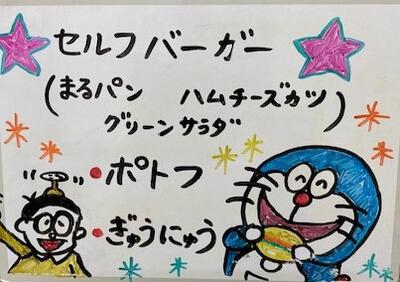 セルフバーガー
(まるパン ハムチーズカツ
グリーンサラダ)
・ポトフ
・ぎゅうにゅう